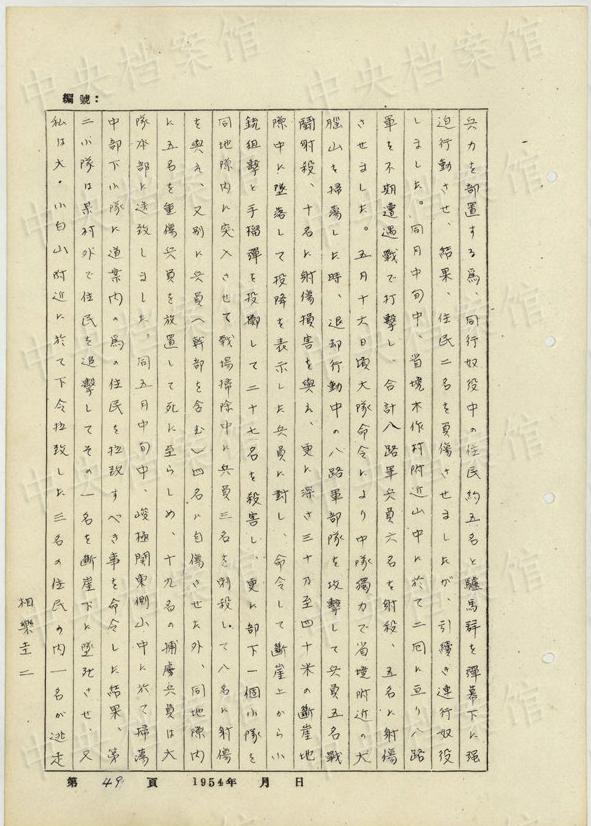 編號：
兵力を部置する為、同行奴役中の住民約五名と驢馬群を彈幕下に强
迫行動させ、結果、住民二名を負傷させましたが、引續き連行奴役
しました。同月中旬中、省境木作村附近山中に於て二回に亘り八路
軍を不期遭遇戰で打擊し、合計八路軍兵員六名を射殺、五名に射傷
させました。五月十六日頃大隊命令により中隊獨力で省境附近の大
腦山を掃蕩した時、退却行動中の八路軍部隊を攻擊して兵員五名戰
鬪射殺、十名に射傷損害を與え、更に深さ三十乃至四十米の斷崖地
隙中に墜落して投降を表示した兵員に對し、命令して斷崖上から小
銃狙擊と手榴彈を投擲して二十七名を殺害し、更に部下一個小隊を
同地隙內に突入させて戰場掃除中に兵員三名を射殺して八名に射傷
を與え、又別に兵員（幹部を含む）四名に自傷させた外、同地隙內
に五名を重傷兵員を放置して死に至らしめ、十九名の捕虜兵員は大
隊本部に送致しました。同五月中旬中、峻極関東側山中に於て掃蕩
中部下小隊に道案內の為の住民を拉致すべき事を命令した結果、第
二小隊は某村外で住民を追擊してその一名を斷崖下に墜死させ、又
私は大・小白山附近に於て下令拉致した三名の住民の內一名が逃走
相樂圭二
第 49 頁 1954年 月 日
中央档案馆